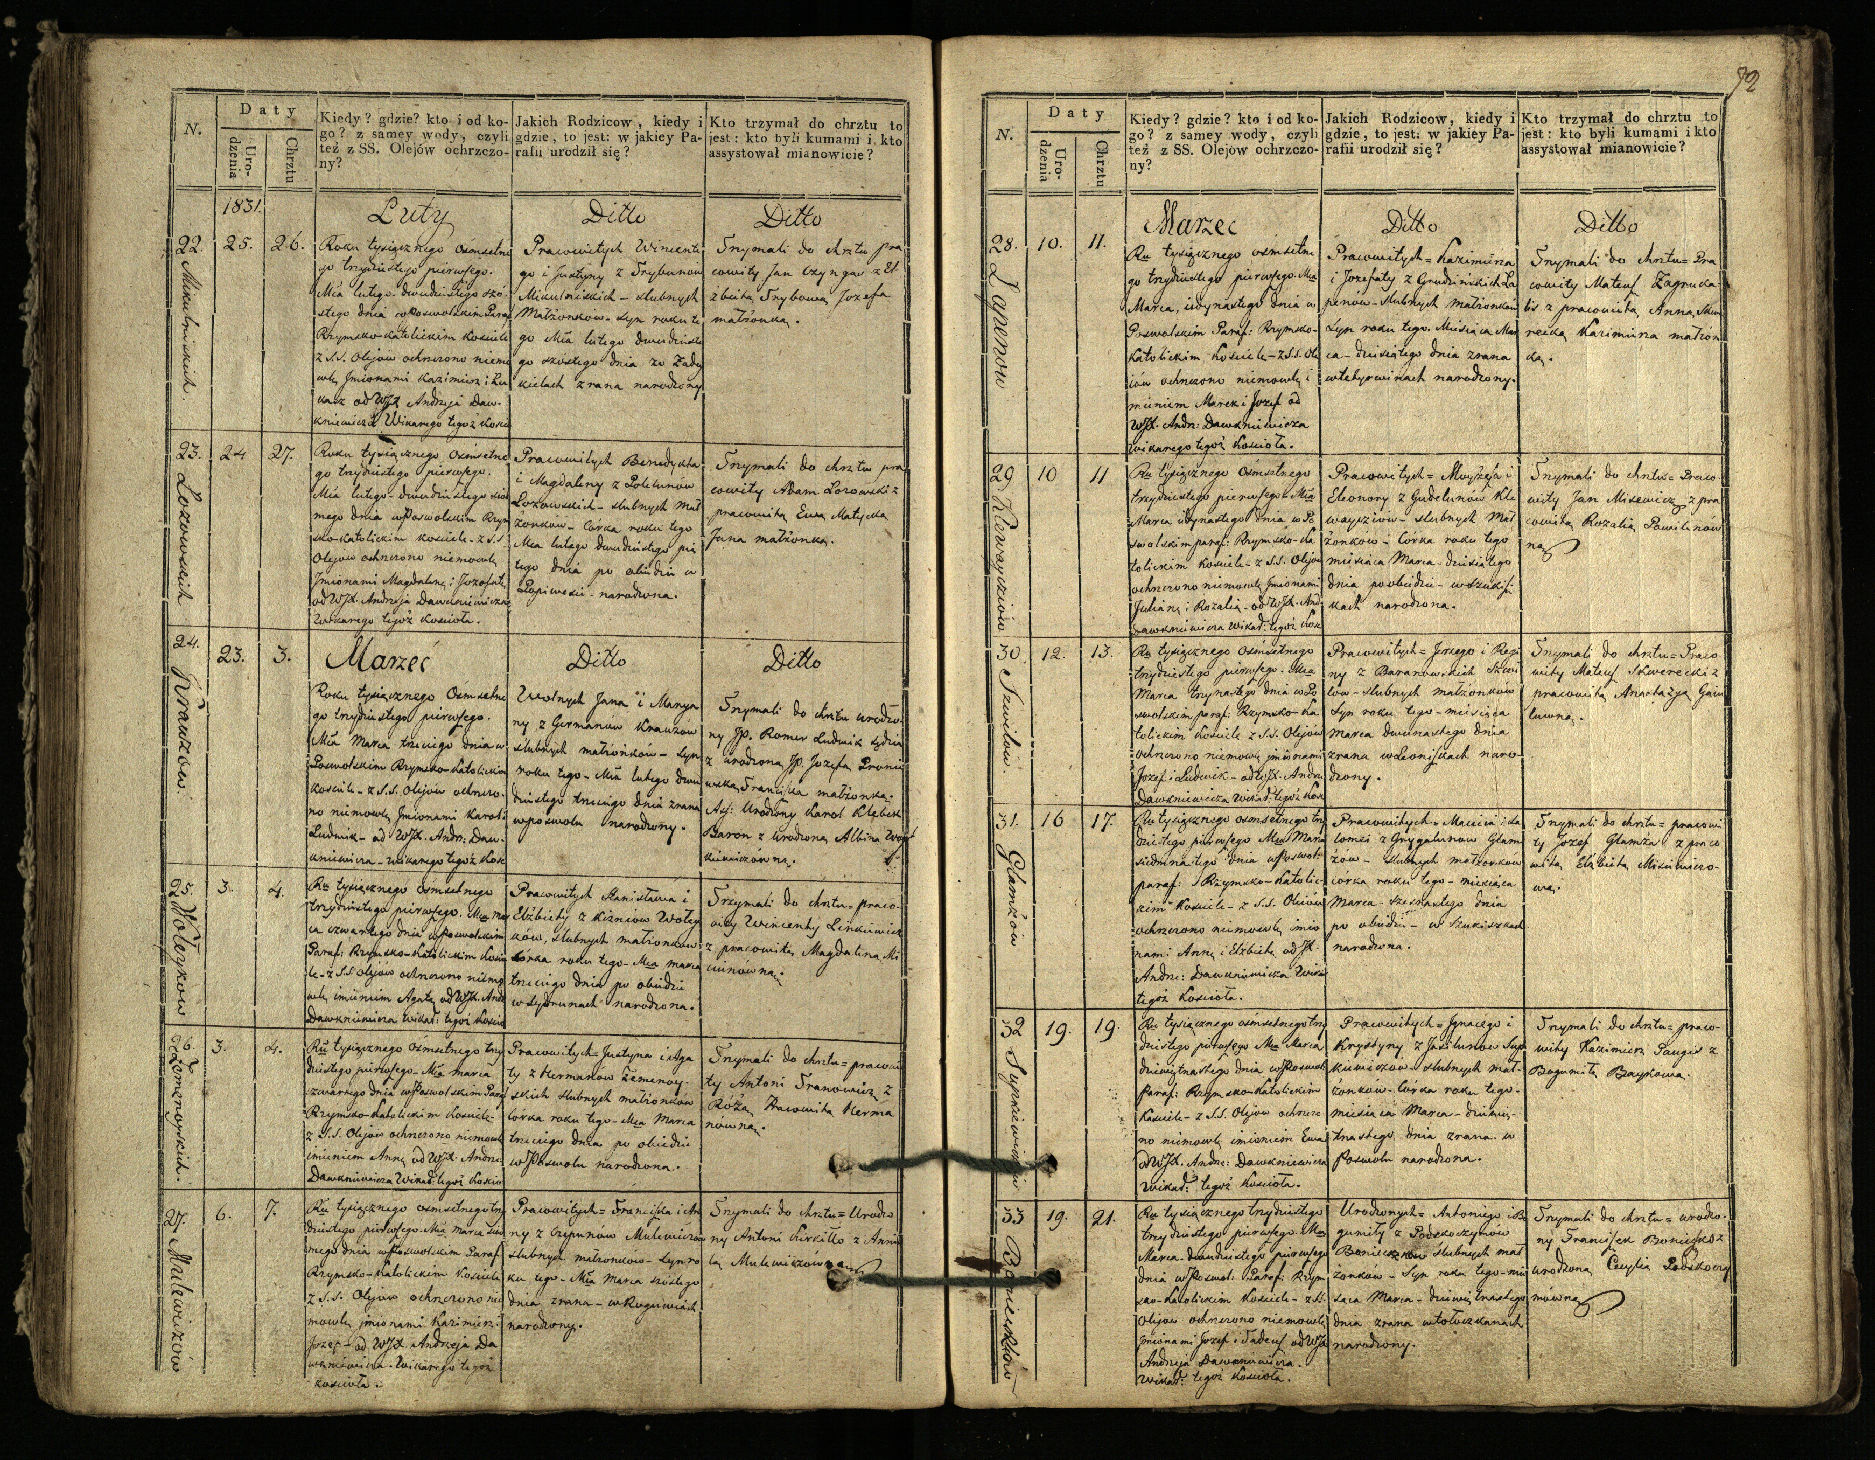 N.
Daty
Urodzenia
Chrztu
Kiedy? gdzie? kto i od ko-
go? z samey wody, czyli
też z SS. Olejów ochrzczo-
ny?
Jakich Rodziców, kiedy i
gdzie, to jest: w jakiey Pa-
rafii urodził się?
Kto trzymał do chrztu to
jest: kto byli kumami i kto
assystował mianowicie?
1831.
Luty
Ditto
Ditto
22.
25.
26.
Roku tysiącznego Osmsetne
go trzydziestego pierwszego.
Mca lutego dwudziestego szo-
stego dnia w Poswolskim Paraf
Rzymsko-Katolickim Kościele
z S.S. Olejów ochrzczono niemo
wlę Imionami Kazimierz i Łu
kasz od WJX Andrzeja Daw-
kniewicza Wikarego tegoż Kościo
Pracowitych Wincente
go i Justyny z Trybunów
slubnych
Małżonków Syn roku te
go Mca lutego dwudzieste
go
zrana narodzony
Trzymali do chrztu pra
cowity Jan z El
żbietą Trybową Jozefa
małżonką.
23. Łozowskich
24
27.
Roku tysiącznego Osmsetne
go trzydziestego pierwszego.
Mca lutego dwudziestego siód
mego dnia w Poswolskim Rzym
sko-Katolickim Kościele z S.S.
Olejów ochrzczono niemowlę
Imionami Magdalenę i Jozefatę
od WJX Andrzeja Dawkniewicza
Wikarego tegoż Kościoła.
Pracowitych Benedykta
i Magdaleny z
Łozowskich slubnych Mał
żonków córka roku tego
Mca lutego dwudziestego pią
tego dnia po obiedzie w
narodzona.
Trzymali do chrztu pra
cowity Adam Łozowski z
pracowitą Ewą Matycką
Jana małżonką.
24. Krauzow
23.
3.
Marzec
Ditto
Ditto
Roku tysiącznego Osmsetne
go trzydziestego pierwszego.
Mca Marca trzeciego dnia w
Poswolskim Rzymsko-Katolickim
Kościele z S.S. Olejów ochrzczo-
no niemowlę Imionami Karol i
Ludwik od WJX. Andrz: Daw-
kniewicza wikarego tegoż Kość
Jana i Marya
ny z Germanów Krauzow
slubnych małżonków syn
roku tego Mca lutego dwu
dziestego trzeciego dnia zrana
w poswolu narodzony.
Trzymali do chrztu urodzo-
ny Jp. Romer Ludwik sędzia
z urodzoną Jp. Jozefą
Franciszka małżonką.
Ass: Urodzony Karol
Baron z urodzoną Albiną
25. Wołeykow
3.
4.
Ru tysiącznego osmsetnego
trzydziestego pierwszego. Mca mar
ca czwartego dnia w Poswolskim
Paraf: Rzymsko-Katolickim Koście
le z S.S. olejów ochrzczono niemo
wlę imieniem Agatę od WJX. And
Dawkniewicza Wikar: tegoż Kościo
Pracowitych Stanisława i
Elżbiety z Wołey
ków, slubnych małżonków
córka roku tego Mca marca
trzeciego dnia po obiedzie
w narodzona.
Trzymali do chrztu praco-
wity Wincenty Linkiewicz
z pracowitą Magdaleną
26.
3.
4.
Ru tysiącznego Osmsetnego trzy
dziestego pierwszego Mca marca
czwartego dnia w Poswolskim Para
Rzymsko-Katolickim Kościele
z S.S. Olejów ochrzczono niemowlę
imieniem Annę od WJX Andrz:
Dawkniewicza Wikar: tegoż Kościo
Pracowitych Justyna i Aga
ty z Hermanów
slubnych małżonków
córka roku tego Mca Marca
trzeciego dnia po obiedzie
w Poswolu narodzona.
Trzymali do chrztu pracowi
ty Antoni z
Rożą Pracowitą Herma
nowną.
27. Mulewiczów
6.
7.
Ru tysiącznego osmsetnego trzy
dziestego pierwszego Mca marca siód
mego dnia w Poswolskim Paraf.
Rzymsko-Katolickim Kościele
z S.S. Olejów ochrzczono nie
mowlę imionami Kazimierz i
Jozef od WJX. Andrzeja Da
wkniewicza Wikarego tegoż
Kościoła.
Pracowitych Franciszka i An
ny z Mulewiczów
slubnych małżonków syn ro
ku tego Mca Marca szóstego
dnia zrana
narodzony.
Trzymali do chrztu Urodzo
ny Antoni z
Mulewiczówną
92
N.
Daty
Urodzenia
Chrztu
Kiedy? gdzie? kto i od ko-
go? z samey wody, czyli
też z SS. Olejów ochrzczo-
ny?
Jakich Rodziców, kiedy i
gdzie, to jest: w jakiey Pa-
rafii urodził się?
Kto trzymał do chrztu to
jest: kto byli kumami i kto
assystował mianowicie?
Marzec
Ditto
Ditto
28. Łapenow
10.
11.
Ru tysiącznego osmsetne
go trzydziestego pierwszego Mca
Marca, iedynastego dnia w
Poswolskim Paraf: Rzymsko-
Katolickim Kościele z S.S. Ole
iów ochrzczono niemowlę i
mieniem Marek i Jozef od
WJX. Andrz: Dawkniewicza
Wikarego tegoż Kościoła.
Pracowitych Kazimierza
i Jozefaty z Grudzinskich Ła
penów slubnych małżonków
Syn roku tego. Miesiąca Mar
ca dziesiątego dnia zrana
narodzony.
Trzymali do chrztu Pra
cowity Mateusz
z pracowitą Anną
Kazimierza małżon
ką.
29.
10
11
Ru tysiącznego Osmsetnego
trzydziestego pierwszego Mca
Marca iedynastego dnia w Po
swolskim paraf: Rzymsko-Ka
tolickim Kościele z S.S. Olejów
ochrzczono niemowlę Imionami
Julianę i Rozalią od WJX. And
Dawkniewicza Wikar: tegoż Kość
Pracowitych
Eleonory z Gudelunów
slubnych Mał
żonków Córka roku tego
miesiąca Marca dziesiątego
dnia po obiedzie
narodzona.
Trzymali do chrztu Praco-
wity Jan Misewicz z pra
cowitą Rozalią
30. Szwilow.
12.
13.
Ru tysiącznego Osmsetnego
trzydziestego pierwszego Mca
Marca trzynastego dnia w Po
swolskim paraf: Rzymsko-Ka
tolickim Kościele z S.S. Olejów
ochrzczono niemowlę imionami
Jozef i Ludwik od WJX. Andrz
Dawkniewicza Wikar: tegoż Kość
Pracowitych Jerzego i Regi
ny z Baranowskich
slubnych małżonków
Syn roku tego miesiąca
Marca dwunastego dnia
zrana naro-
dzony.
Trzymali do chrztu Praco
wity Mateusz z
pracowitą Anastazyą
31. Glamżów
16
17
Ru tysiącznego osmsetnego trzy
dziestego pierwszego Mca Marca
siedmnastego dnia w Poswol:
paraf: Rzymsko-Katolic-
kim Kościele z S.S. Olejów
ochrzczono niemowlę, imio
nami Annę i Elżbietę od JX.
Andrz: Dawkniewicza Wikar
tegoż Kościoła.
Pracowitych Macieia i Sa
lomei z Glam
żów slubnych małżonków
córka roku tego miesiąca
Marca szesnastego dnia
po obiedzie w
narodzona.
Trzymali do chrztu pracowi
ty Jozef Glamża z praco
witą Elżbietą
32
19.
19.
Ru tysiącznego osmsetnego trzy
dziestego pierwszego Mca Marca
dziewiętnastego dnia w Poswol
Paraf: Rzymsko-Katolickim
Kościele z S.S. Olejów ochrzczo
no niemowlę imieniem Ewa
od WJX. Andrz: Dawkniewicza
Wikar: tegoż Kościoła.
Pracowitych Ignacego i
Krystyny z
slubnych mał-
żonków Córka roku tego
miesiąca Marca dziewię-
tnastego dnia zrana w
Poswolu narodzona.
Trzymali do chrztu praco-
wity Kazimierz z
Bogumiłą
33
19.
21.
Ru tysiącznego trzydziestego
trzydziestego pierwszego Mca
Marca dwudziestego pierwszego
dnia w Poswol: Paraf: Rzym-
sko-Katolickim Kościele z SS.
Olejów ochrzczono niemowlę
imionami Jozef i Tadeusz od WJX
Andrzeja Dawkniewicza
Wikar: tegoż Kościoła.
Urodzonych Antoniego i Bo
gumiły z
slubnych mał
żonków Syn roku tego mie
siąca Marca dziewiętnastego
dnia zrana
narodzony.
Trzymali do chrztu urodzo-
ny Franciszek z
urodzoną Cecylią